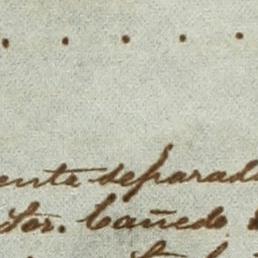 . . . . .
ente separad
tor. Cañedo